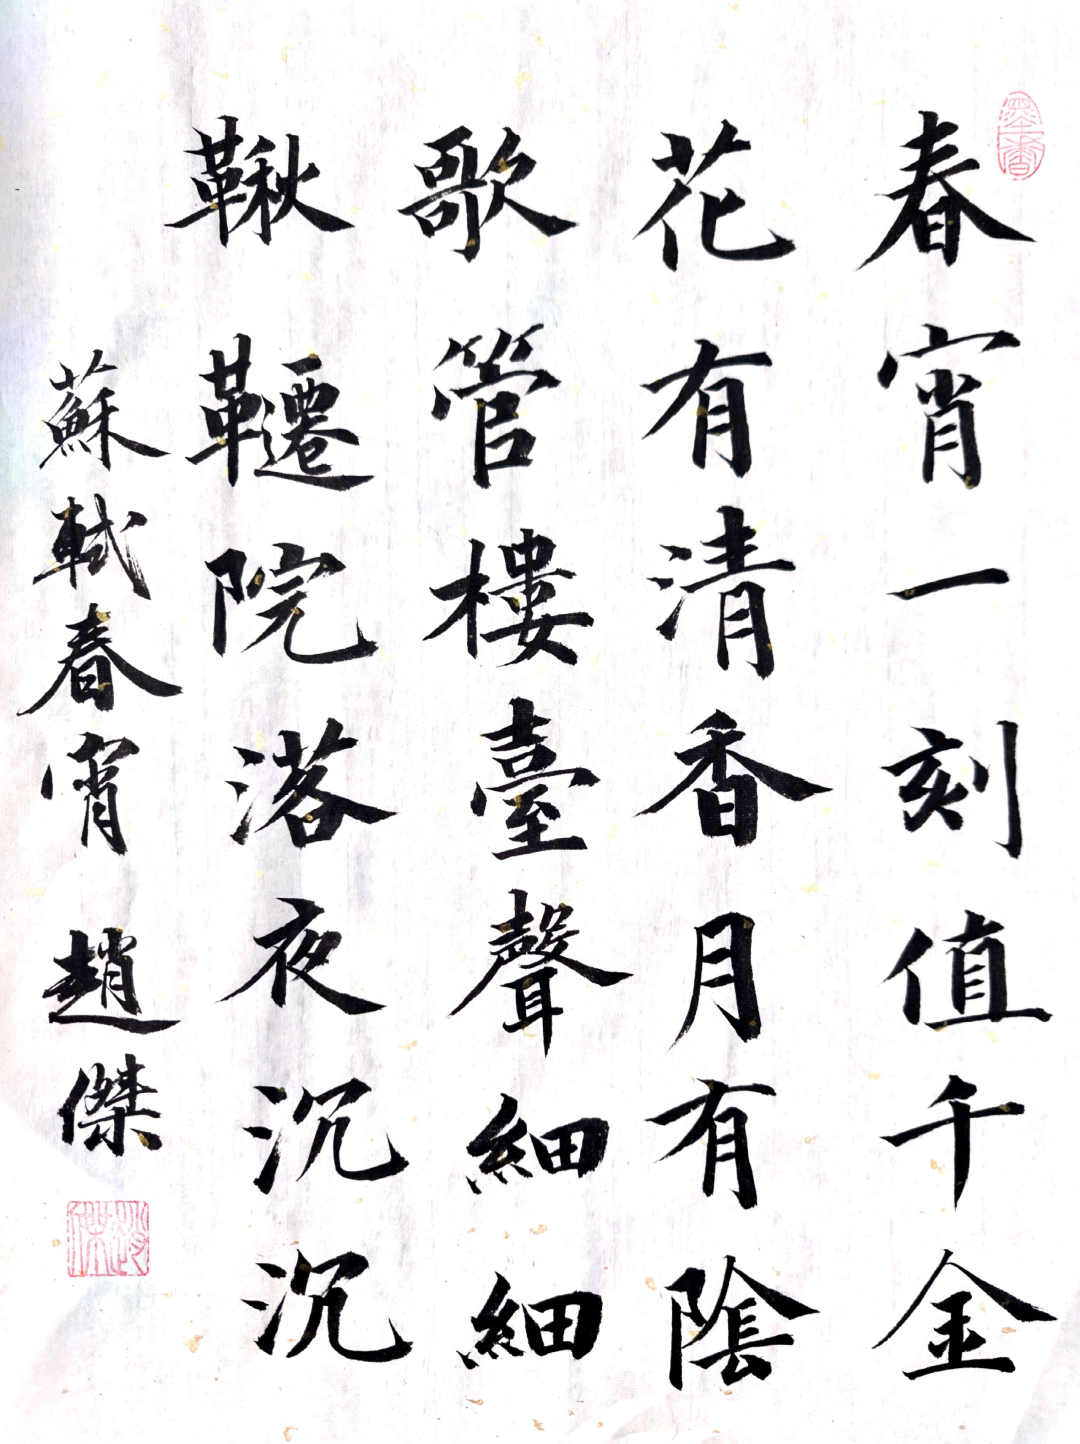 春宵一刻值千金
花有清香月有陰
歌管樓臺聲細細
鞦韆院落夜沉沉
蘇軾春宵 趙傑
墨香
趙傑